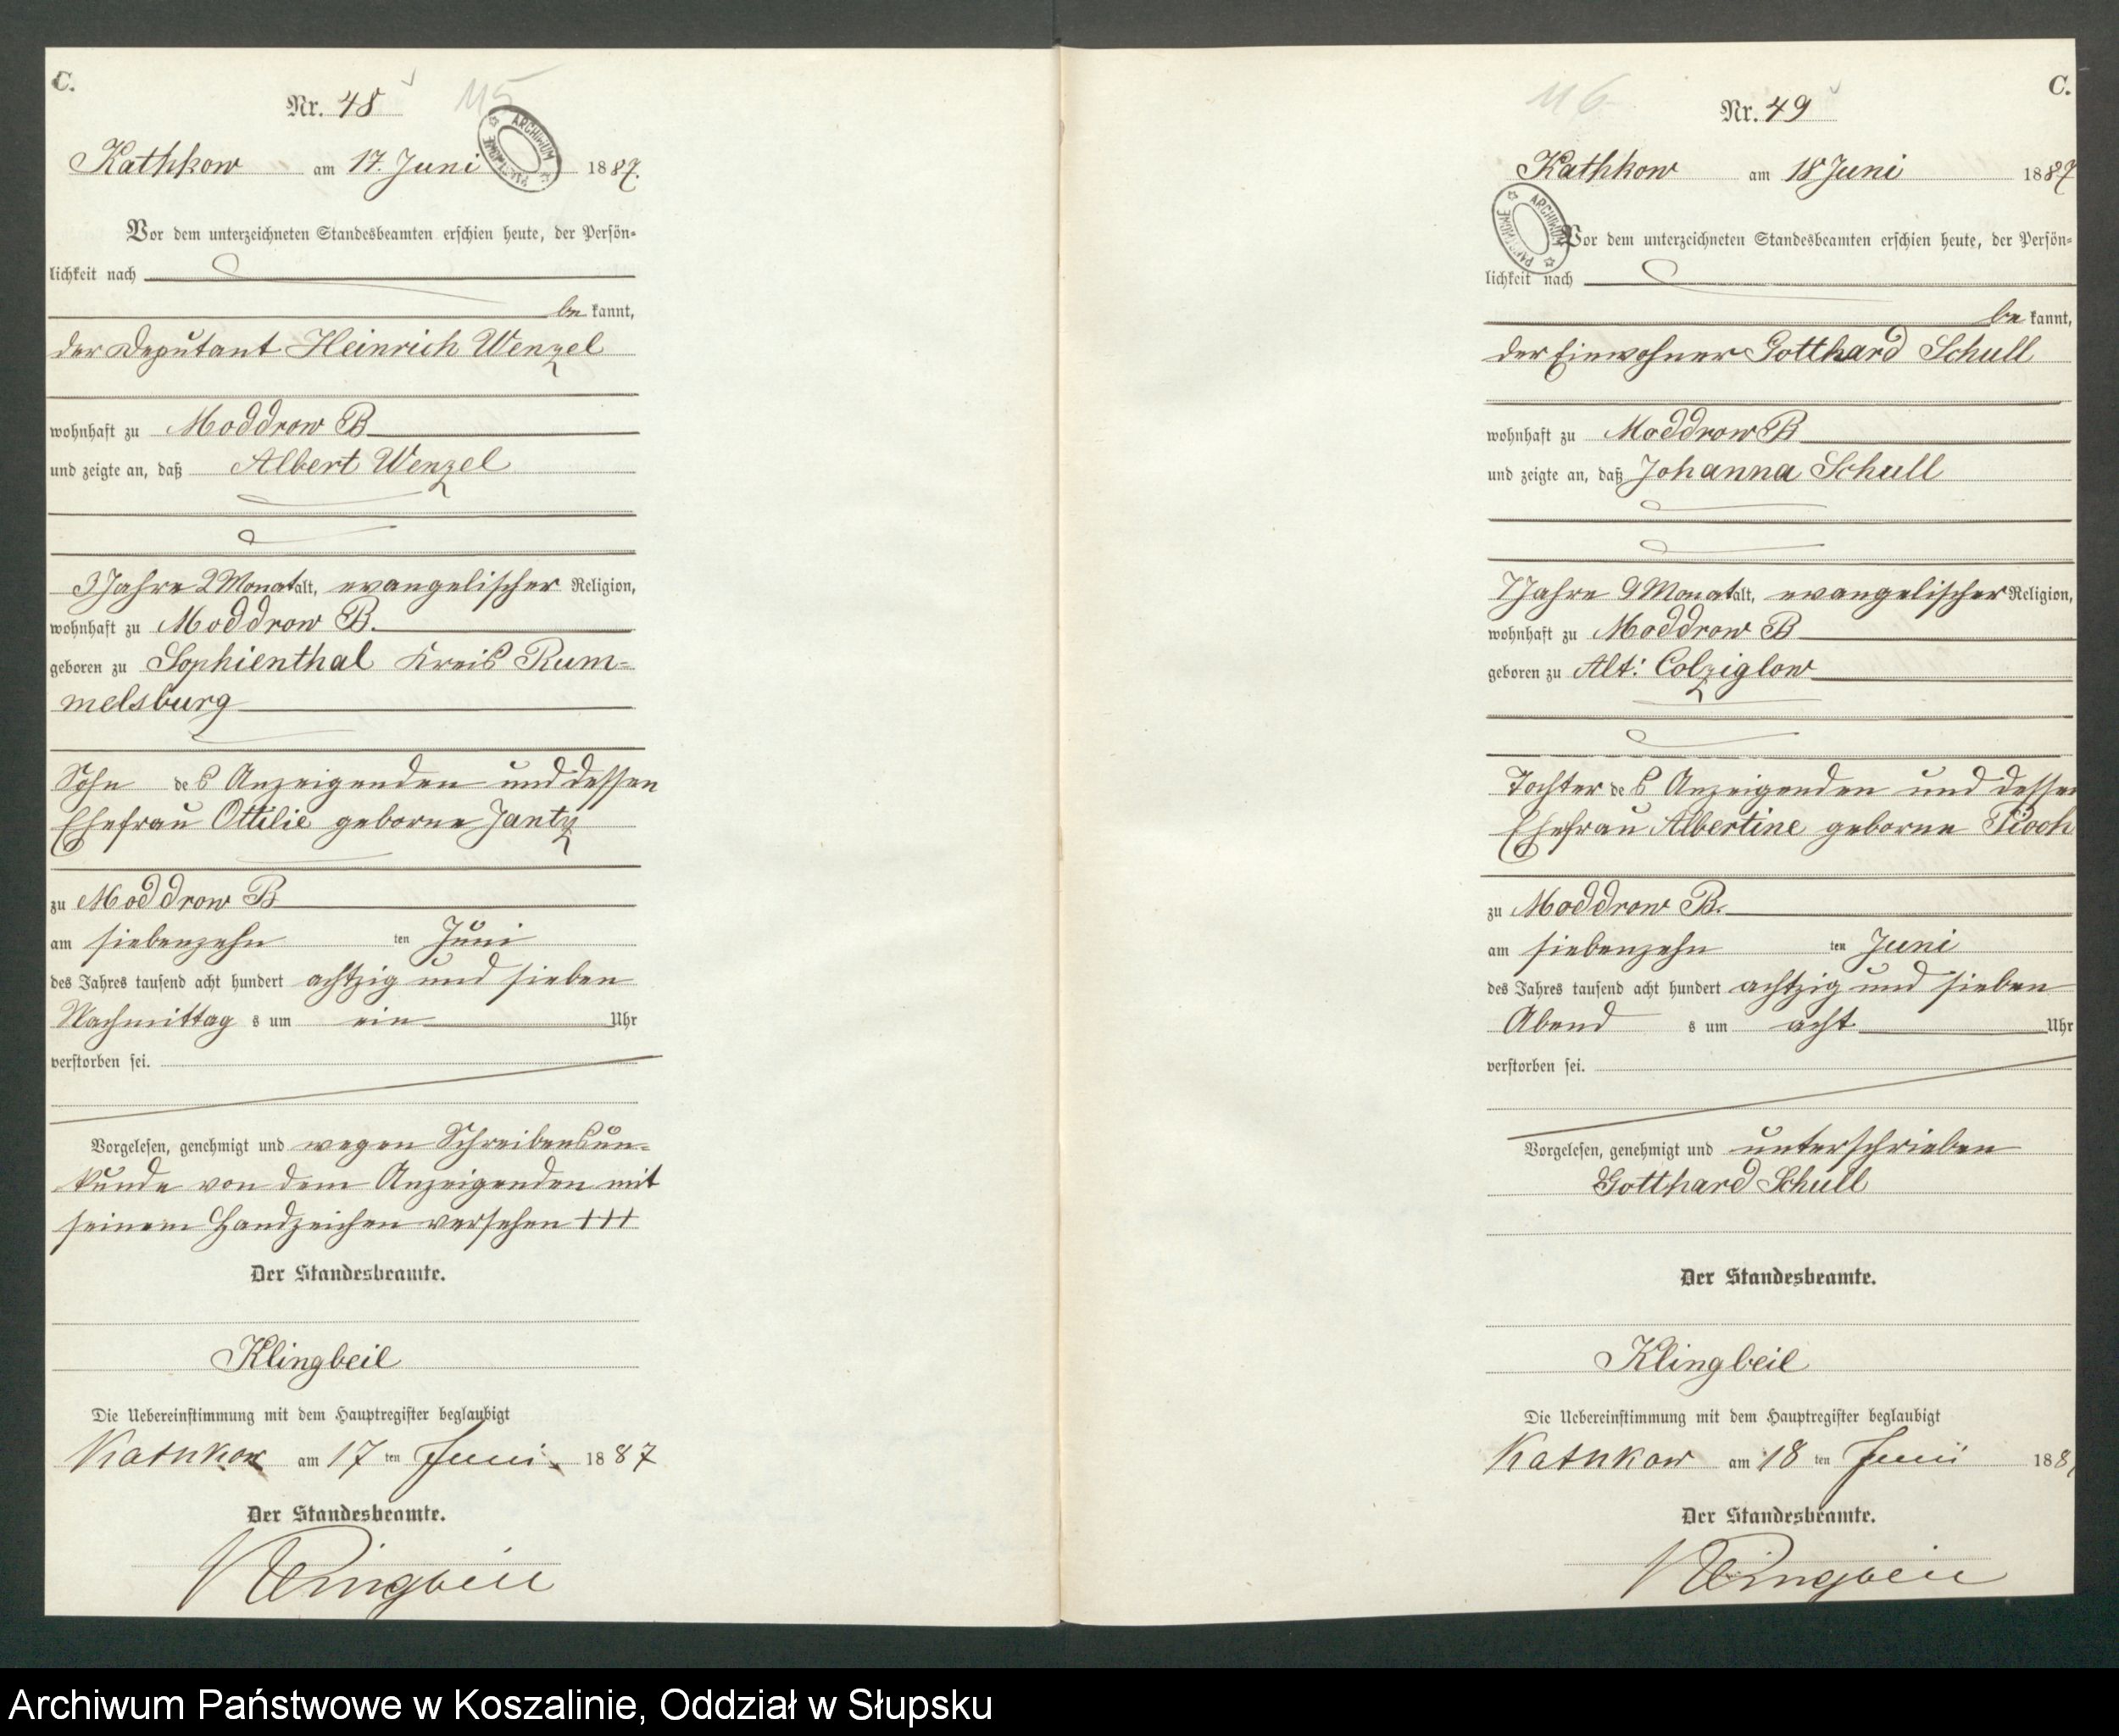 C.
Nr. 48
115
ARCHIWUM PAŃSTWOWE
Kathkow am 17. Juni 1887.
Vor dem unterzeichneten Standesbeamten erschien heute, der Persön-
lichkeit nach
be kannt,
der Deputant Heinrich Wenzel
wohnhaft zu Moddrow B
und zeigte an, daß Albert Wenzel
3 Jahre 2 Monat alt, evangelischer Religion,
wohnhaft zu Moddrow B.
geboren zu Sophienthal Kreis Rum-
melsburg
Sohn des Anzeigenden und dessen
Ehefrau Ottilie geborne Jantz
zu Moddrow B
am siebenzehn ten Juni
des Jahres tausend acht hundert achtzig und sieben
Nachmittag s um ein Uhr
verstorben sei.
Vorgelesen, genehmigt und wegen Schreibensun-
kunde von dem Anzeigenden mit
seinem Handzeichen versehen +++
Der Standesbeamte.
Klingbeil
Die Uebereinstimmung mit dem Hauptregister beglaubigt
Kathkow am 17 ten Juni 1887
Der Standesbeamte.
Klingbeil
C.
116
Nr. 49
Kathkow am 18 Juni 1887
ARCHIWUM PAŃSTWOWE
Vor dem unterzeichneten Standesbeamten erschien heute, der Persön-
lichkeit nach
be kannt,
der Einwohner Gotthard Schull
wohnhaft zu Moddrow B
und zeigte an, daß Johanna Schull
7 Jahre 9 Monat alt, evangelischer Religion,
wohnhaft zu Moddrow B
geboren zu Alt: Colziglow
Tochter des Anzeigenden und dessen
Ehefrau Albertine geborne Pioch
zu Moddrow B.
am siebenzehn ten Juni
des Jahres tausend acht hundert achtzig und sieben
Abend s um acht Uhr
verstorben sei.
Vorgelesen, genehmigt und unterschrieben
Gotthard Schull
Der Standesbeamte.
Klingbeil
Die Uebereinstimmung mit dem Hauptregister beglaubigt
Kathkow am 18 ten Juni 188
Der Standesbeamte.
Klingbeil
Archiwum Państwowe w Koszalinie, Oddział w Słupsku